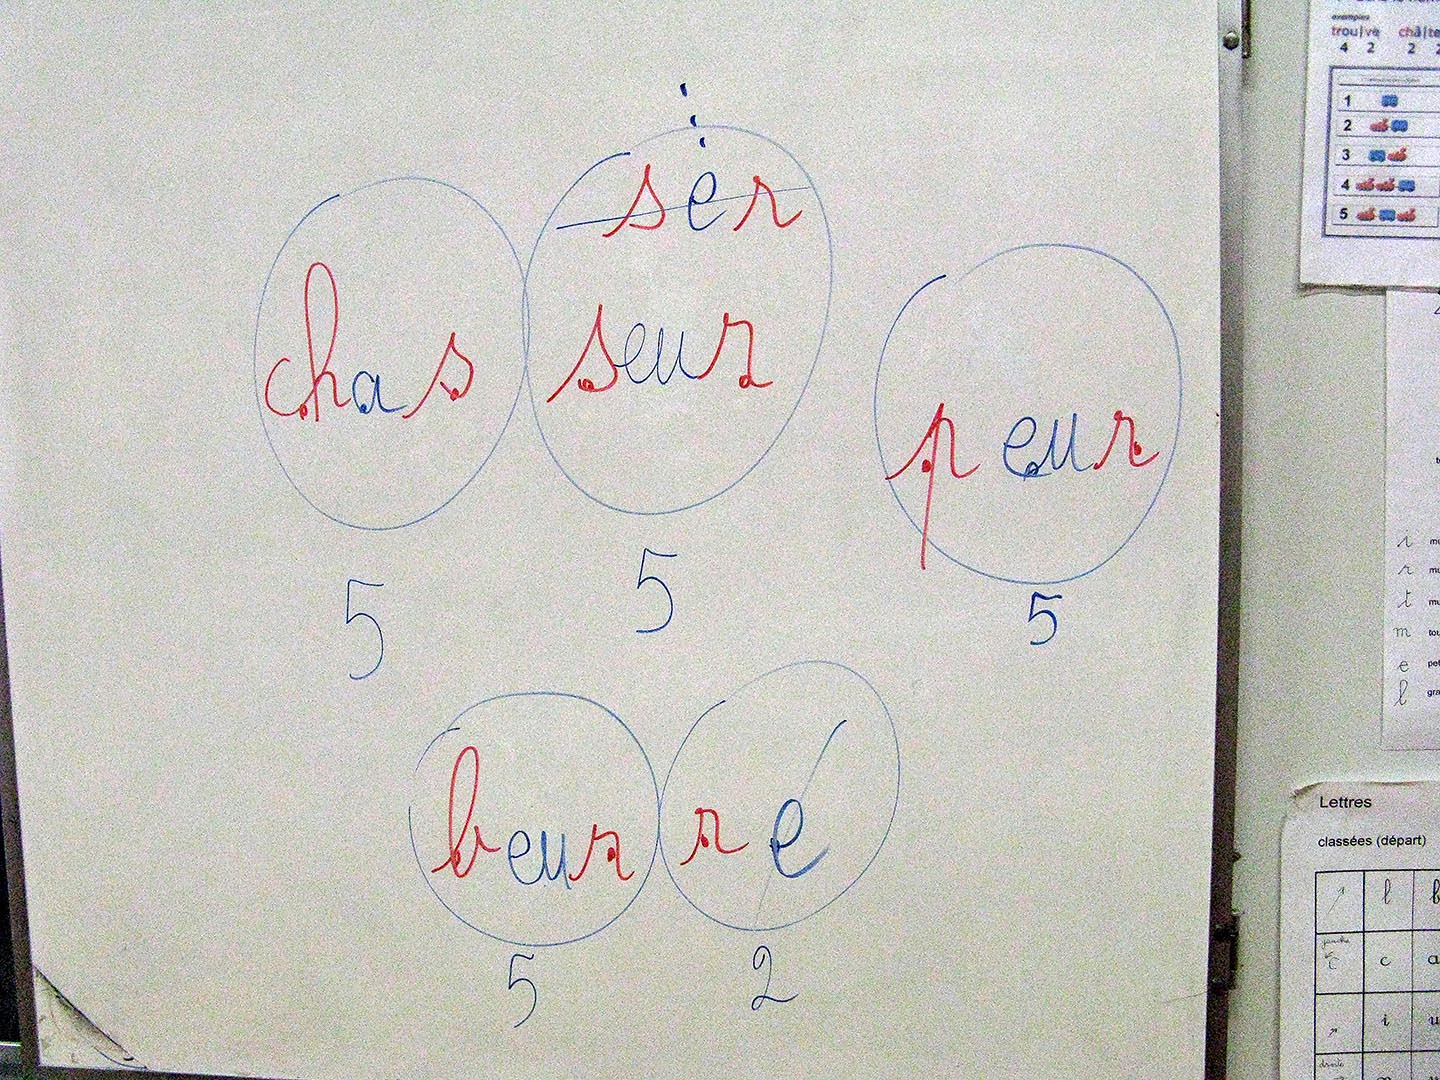 sėr
chas seur
peur
5 5 5
beur re
5 2
exemples
trou|ve châ|te
4 2 2 2
1
2
3
4
5
i mu
r mu
t mu
m tou
e pet
l gra
Lettres
classées (départ)
l b
c a
i u